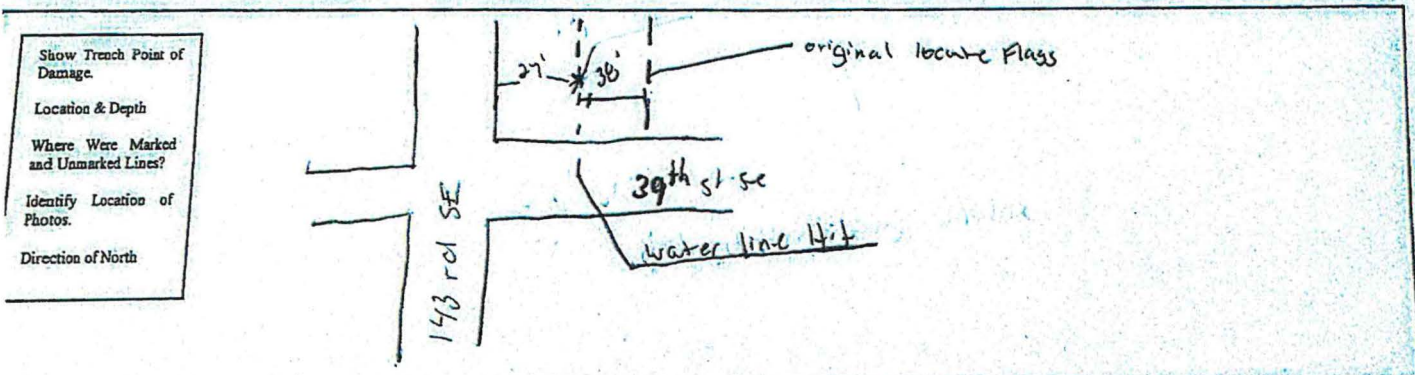 Show Trench Point of
Damage.
Location & Depth
Where Were Marked
and Unmarked Lines?
Identify Location of
Photos.
Direction of North
27'
38'
original locate Flags
39th st se
143 rd SE
water line Hit